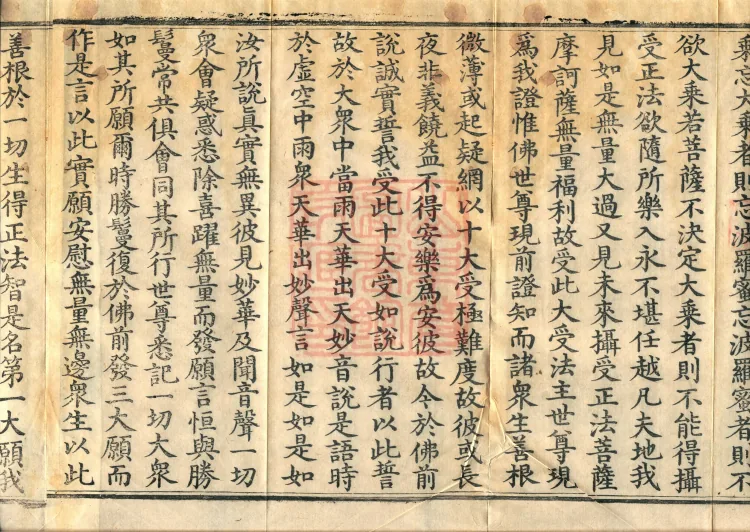 乘忘大乘者則忘波羅蜜忘波羅蜜者則不
欲大乘若菩薩不決定大乘者則不能得攝
受正法欲隨所樂入永不堪任越凡夫地我
見如是無量大過又見未來攝受正法菩薩
摩訶薩無量福利故受此大受法主世尊現
爲我證惟佛世尊現前證知而諸衆生善根
微薄或起疑網以十大受極難度故彼或長
夜非義饒益不得安樂爲安彼故今於佛前
說誠實誓我受此十大受如說行者以此誓
故於大衆中當雨天華出天妙音說是語時
於虛空中雨衆天華出妙聲言如是如是如
汝所說眞實無異彼見妙華及聞音聲一切
衆會疑惑悉除喜躍無量而發願言恒與勝
鬘常共俱會同其所行世尊悉記一切大衆
如其所願爾時勝鬘復於佛前發三大願而
作是言以此實願安慰無量無邊衆生以此
善根於一切生得正法智是名第一大願我